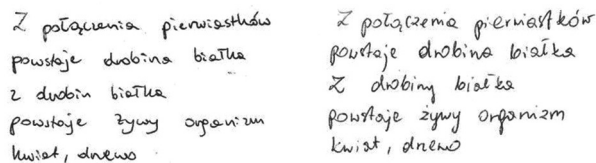 Z połączenia pierwiastków
powstaje drobina białka
z drobin białka
powstaje żywy organizm
kwiat, drzewo
Z połączenia pierwiastków
powstaje drobina białka
Z drobiny białka
powstaje żywy organizm
kwiat, drzewo